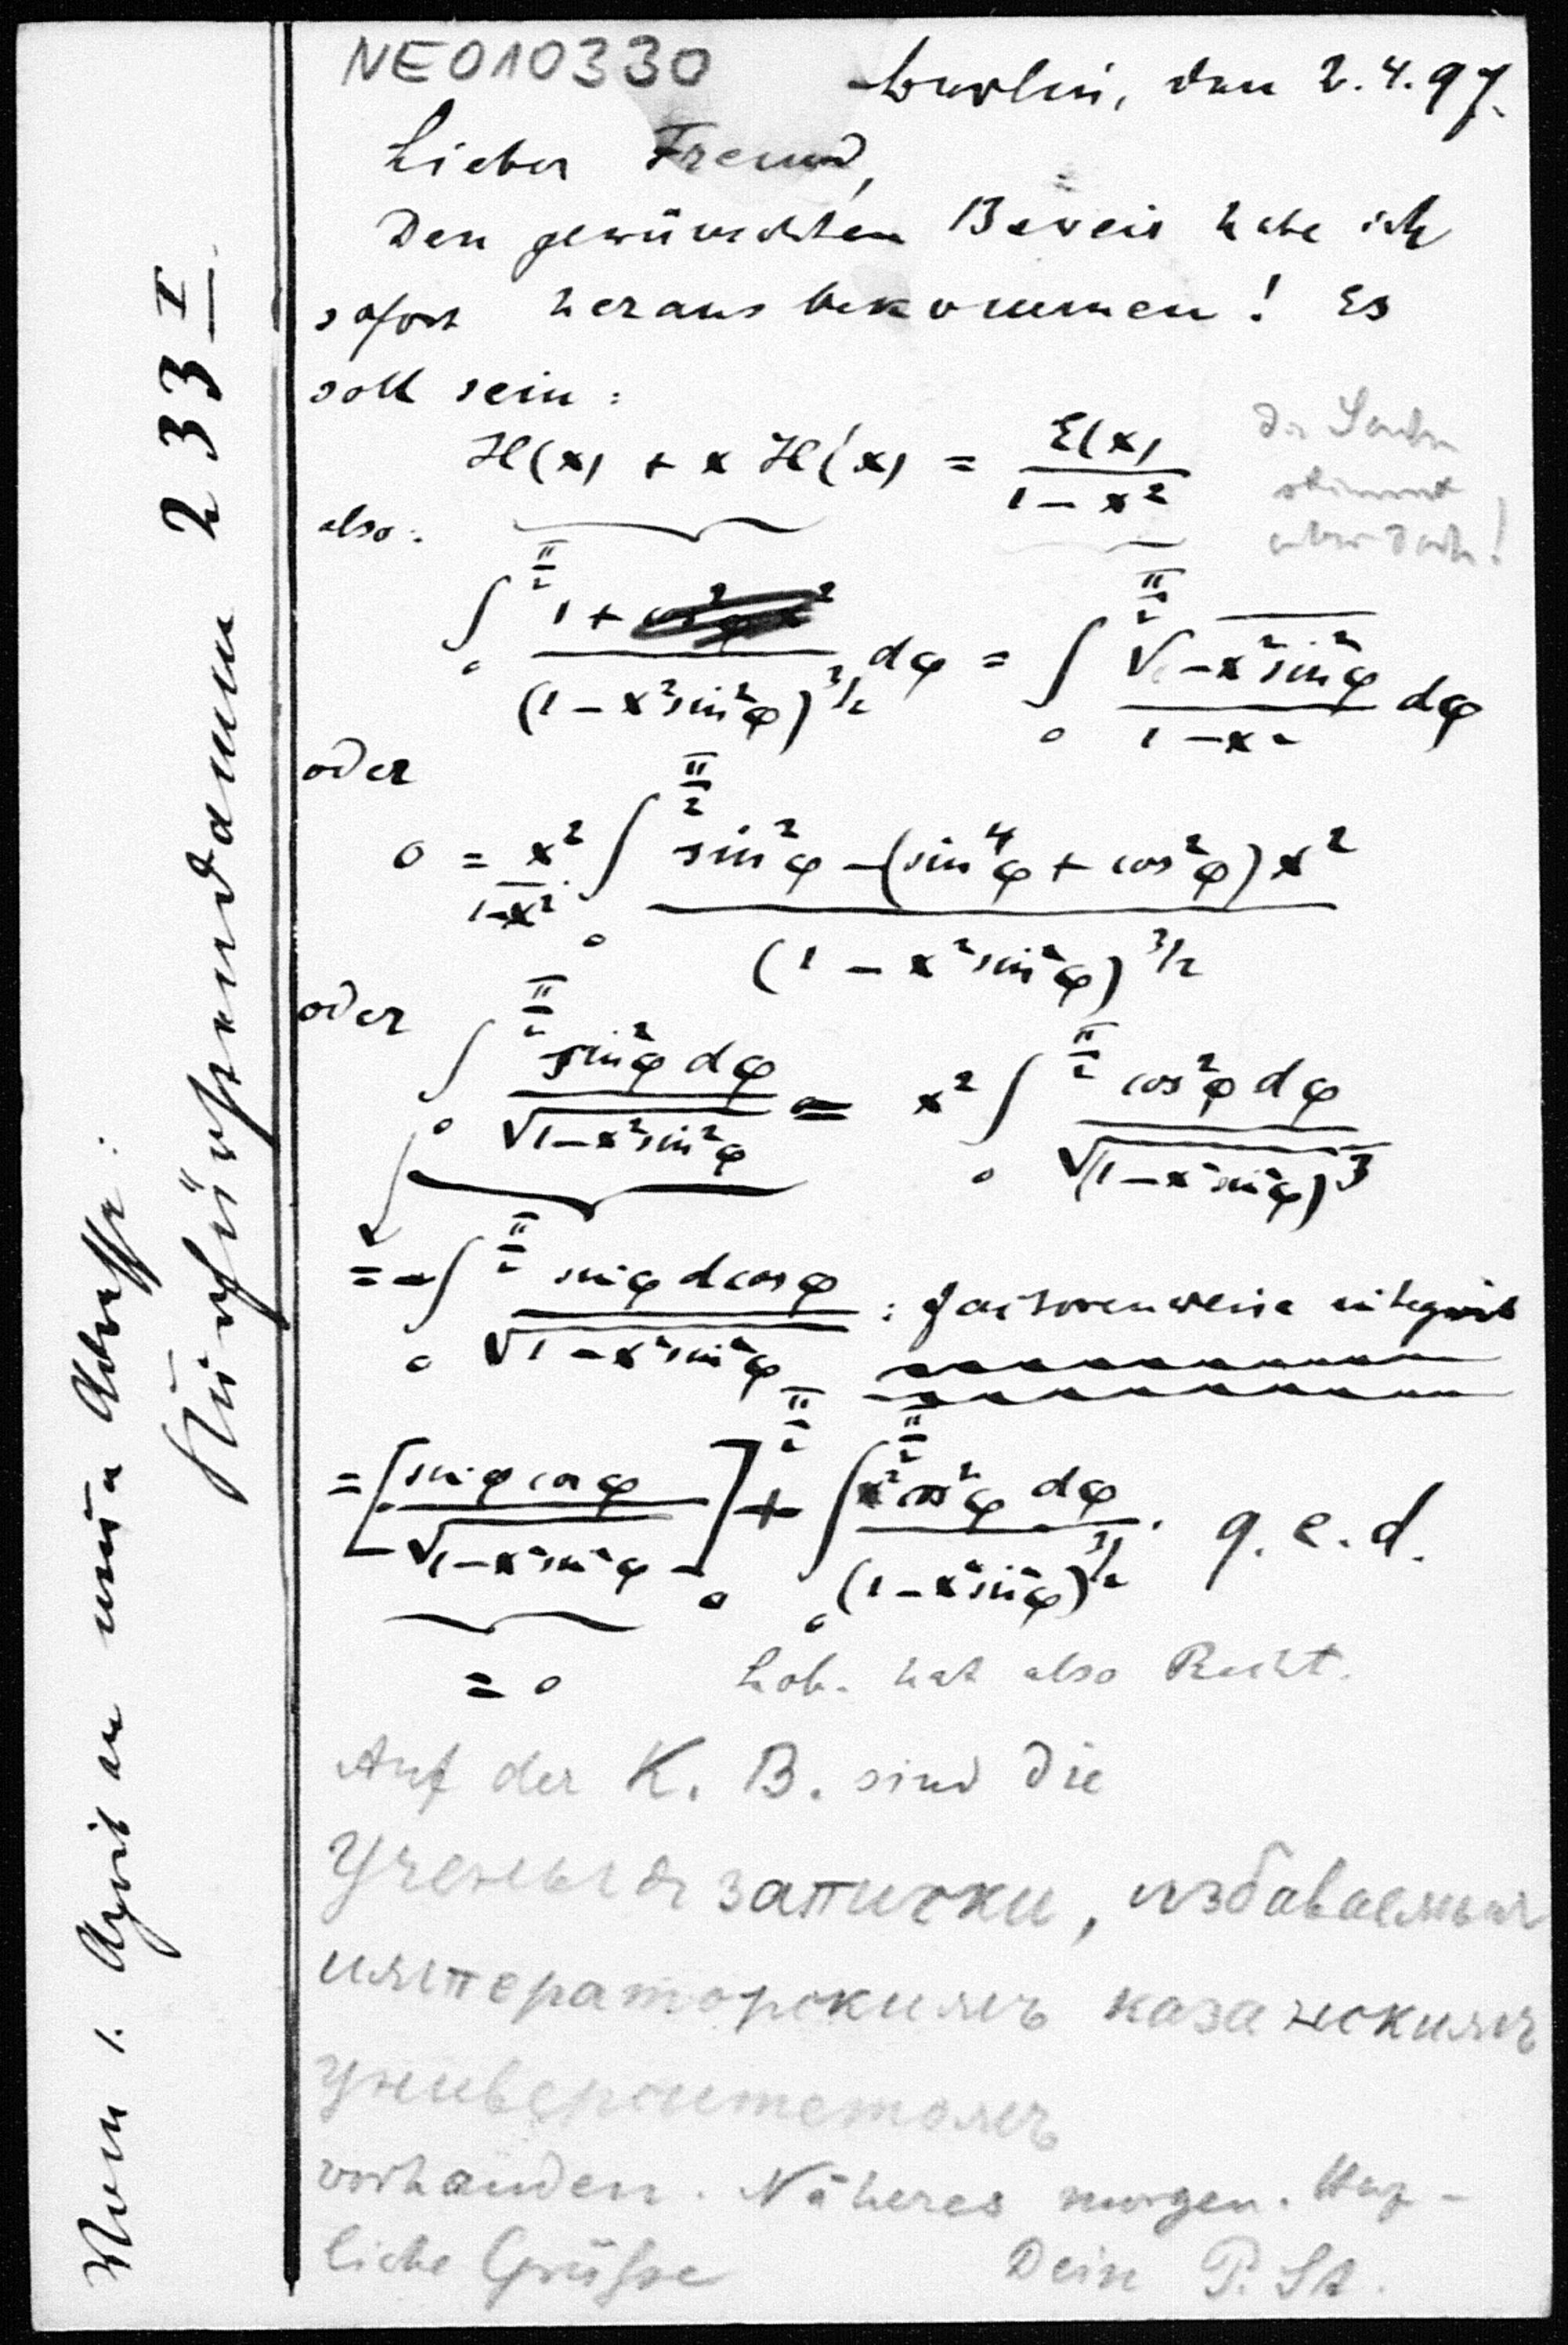 NE010330
Berlin, den 2.4.97.
Lieber Freund,
Den gewünschten Beweis habe ich
sofort herausbekommen! Es
soll sein:
H(x) + x H'(x) = E(x) / (1 - x²)
Die Sache
stimmt
aber doch!
also:
∫₀^{π/2} (1 + ) / (1 - x² sin²φ)^{3/2} dφ = ∫₀^{π/2} √(1 - x² sin²φ) / (1 - x²) dφ
oder
0 = x² / (1-x²) · ∫₀^{π/2} (sin²φ - (sin⁴φ + cos²φ) x²) / (1 - x² sin²φ)^{3/2}
oder
∫₀^{π/2} sin²φ dφ / √(1 - x² sin²φ) = x² ∫₀^{π/2} cos²φ dφ / √(1 - x² sin²φ)³
= - ∫₀^{π/2} sin φ d cos φ / √(1 - x² sin²φ) : factorenweise integrirt
= [sin φ cos φ / √(1 - x² sin²φ)]₀^{π/2} + ∫₀^{π/2} x² cos²φ dφ / (1 - x² sin²φ)^{3/2} . q.e.d.
= 0
Lob. hat also Recht.
Auf der K. B. sind die
записки,
императорскимъ казанскимъ
университетомъ
vorhanden. Näheres morgen. Herz-
liche Grüße Dein P. St.
Vom 1. April an meine Adresse:
Kurfürstendamm 233 I